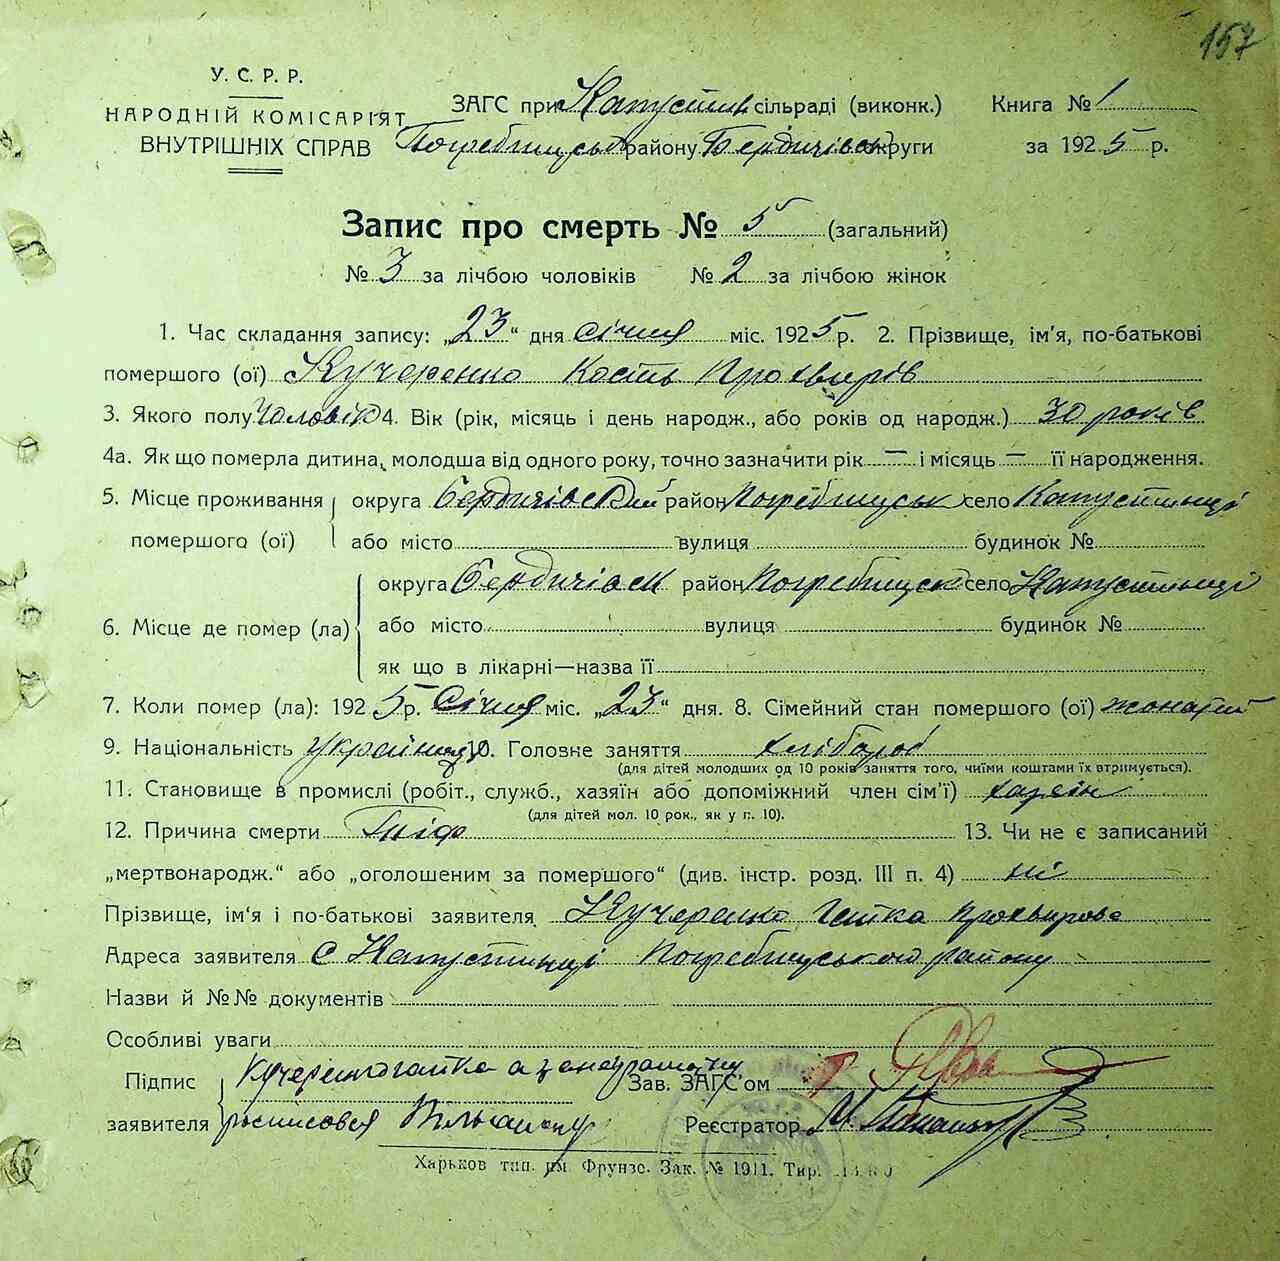 157
У. С. Р. Р.
НАРОДНІЙ КОМІСАРІЯТ
ВНУТРІШНІХ СПРАВ
ЗАГС при Капустин сільраді (виконк.) Книга № 1
Погребищськ району Бердичівськ округи за 1925 р.
Запис про смерть № 5 (загальний)
№ 3 за лічбою чоловіків № 2 за лічбою жінок
1. Час складання запису: „23“ дня січня міс. 1925 р. 2. Прізвище, ім'я, по-батькові
помершого (ої) Кучеренко Кость Прохвирів
3. Якого полу Чоловік 4. Вік (рік, місяць і день народж., або років од народж.) 30 років
4а. Як що померла дитина, молодша від одного року, точно зазначити рік — і місяць — її народження.
5. Місце проживання помершого (ої) округа Бердичівський район Погребищськ село Капустинці
або місто вулиця будинок №
6. Місце де помер (ла) округа Бердичівськ район Погребищськ село Капустинці
або місто вулиця будинок №
як що в лікарні—назва її
7. Коли помер (ла): 1925 р. Січня міс. „23“ дня. 8. Сімейний стан помершого (ої) жонатий
9. Національність Українец 10. Головне заняття хлібороб
(для дітей молодших од 10 років заняття того, чиїми коштами їх втримується).
11. Становище в промислі (робіт., служб., хазяїн або допоміжний член сім'ї) хазяїн
(для дітей мол. 10 рок., як у п. 10).
12. Причина смерти Тіф 13. Чи не є записаний
„мертвонародж.“ або „оголошеним за помершого“ (див. інстр. розд. III п. 4) ні
Прізвище, ім'я і по-батькові заявителя Кучеренко Гапка Прохвирова
Адреса заявителя с Капустинці Погребищського району
Назви й №№ документів
Особливі уваги
Підпис заявителя Кучеренко гапка а за неграмотну
росписовся
Зав. ЗАГС'ом
Реєстратор
Харьков тип. им. Фрунзе. Зак. № 1911. Тир.